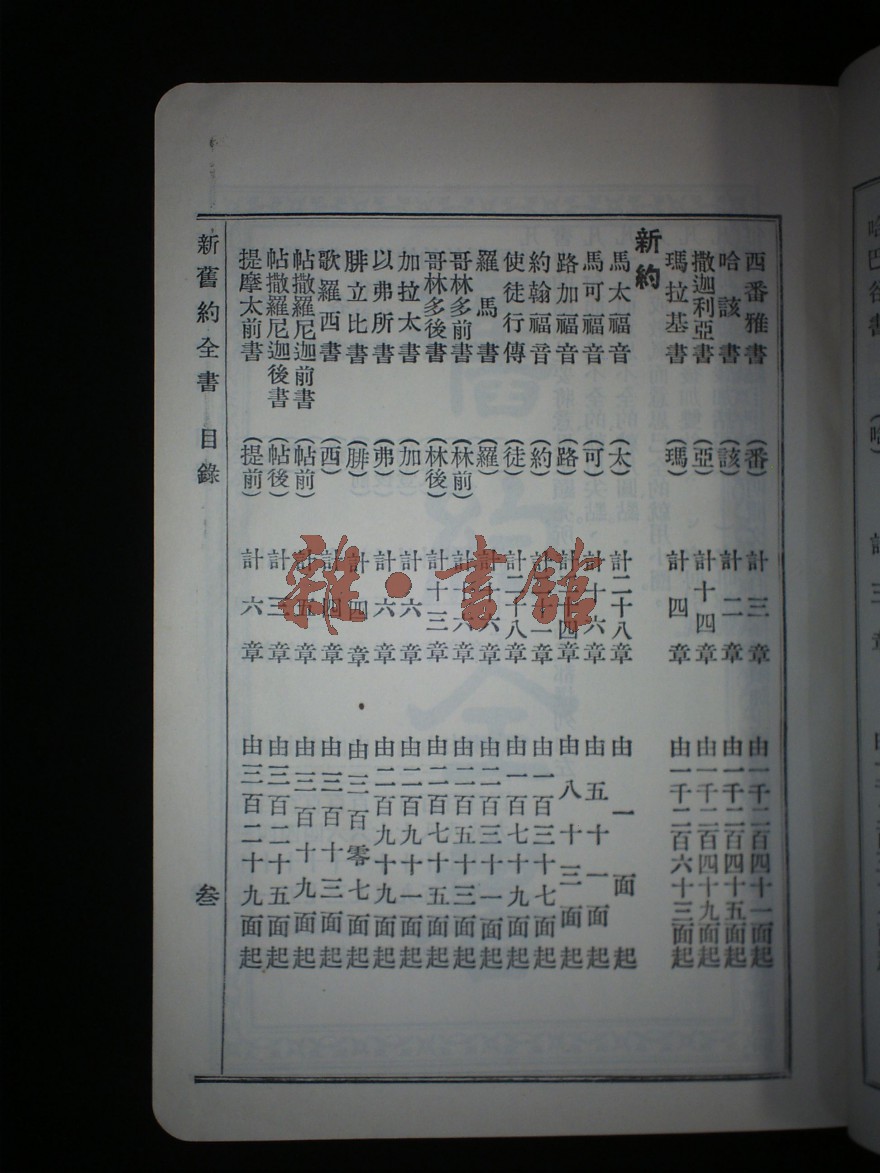 西番雅書 (番) 計三章 由一千二百四十一面起
哈該書 (該) 計二章 由一千二百四十五面起
撒迦利亞書 (亞) 計十四章 由一千二百四十九面起
瑪拉基書 (瑪) 計四章 由一千二百六十三面起
新約
馬太福音 (太) 計二十八章 由一面起
馬可福音 (可) 計十六章 由五十一面起
路加福音 (路) 計二十四章 由八十三面起
約翰福音 (約) 計二十一章 由一百三十七面起
使徒行傳 (徒) 計二十八章 由一百七十九面起
羅馬書 (羅) 計十六章 由二百三十一面起
哥林多前書 (林前) 計十六章 由二百五十三面起
哥林多後書 (林後) 計十三章 由二百七十五面起
加拉太書 (加) 計六章 由二百九十一面起
以弗所書 (弗) 計六章 由二百九十九面起
腓立比書 (腓) 計四章 由三百零七面起
歌羅西書 (西) 計四章 由三百十三面起
帖撒羅尼迦前書 (帖前) 計五章 由三百十九面起
帖撒羅尼迦後書 (帖後) 計三章 由三百二十五面起
提摩太前書 (提前) 計六章 由三百二十九面起
新舊約全書 目錄 叁
雜·書館